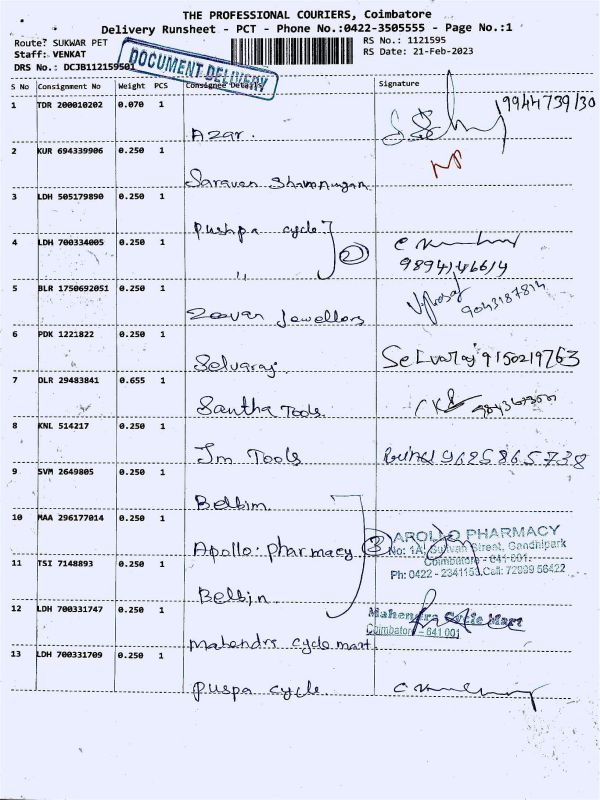 THE PROFESSIONAL COURIERS, Coimbatore
Delivery Runsheet - PCT - Phone No.:0422-3505555 - Page No.:1
Route: SUKWAR PET
RS No.: 1121595
Staff: VENKAT
RS Date: 21-Feb-2023
DRS No.: DCJB112159501
DOCUMENT DELIVERY
S No Consignment No Weight PCS Consignee Details Signature
1 TDR 200010202 0.070 1
Azar.
2 KUR 694339906 0.250 1
NP
Saravan Shanmugan
3 LDH 505179890 0.250 1
Pushpa cycle
4 LDH 700334005 0.250 1
" 2
5 BLR 1750692051 0.250 1
Jeevan Jewellors
9043187814
6 PDK 1221822 0.250 1
Selvaraj
Selvaraj 9150219763
7 DLR 29483841 0.655 1
Santha Tools
8 KNL 514217 0.250 1
Jm Tools
9625865738
9 SVM 2649805 0.250 1
Belbin
10 MAA 296177014 0.250 1
Apollo pharmacy 3
APOLLO PHARMACY
No: 1A, Street, Gandhipark
Coimbatore - 641 001.
Ph: 0422 - 2341153, Cell: 72999 56422
11 TSI 7148893 0.250 1
Belbin
12 LDH 700331747 0.250 1
Mahendra Cycle Mart
Coimbatore - 641 001
Mahendrs cycle mart
13 LDH 700331709 0.250 1
Puspa cycle